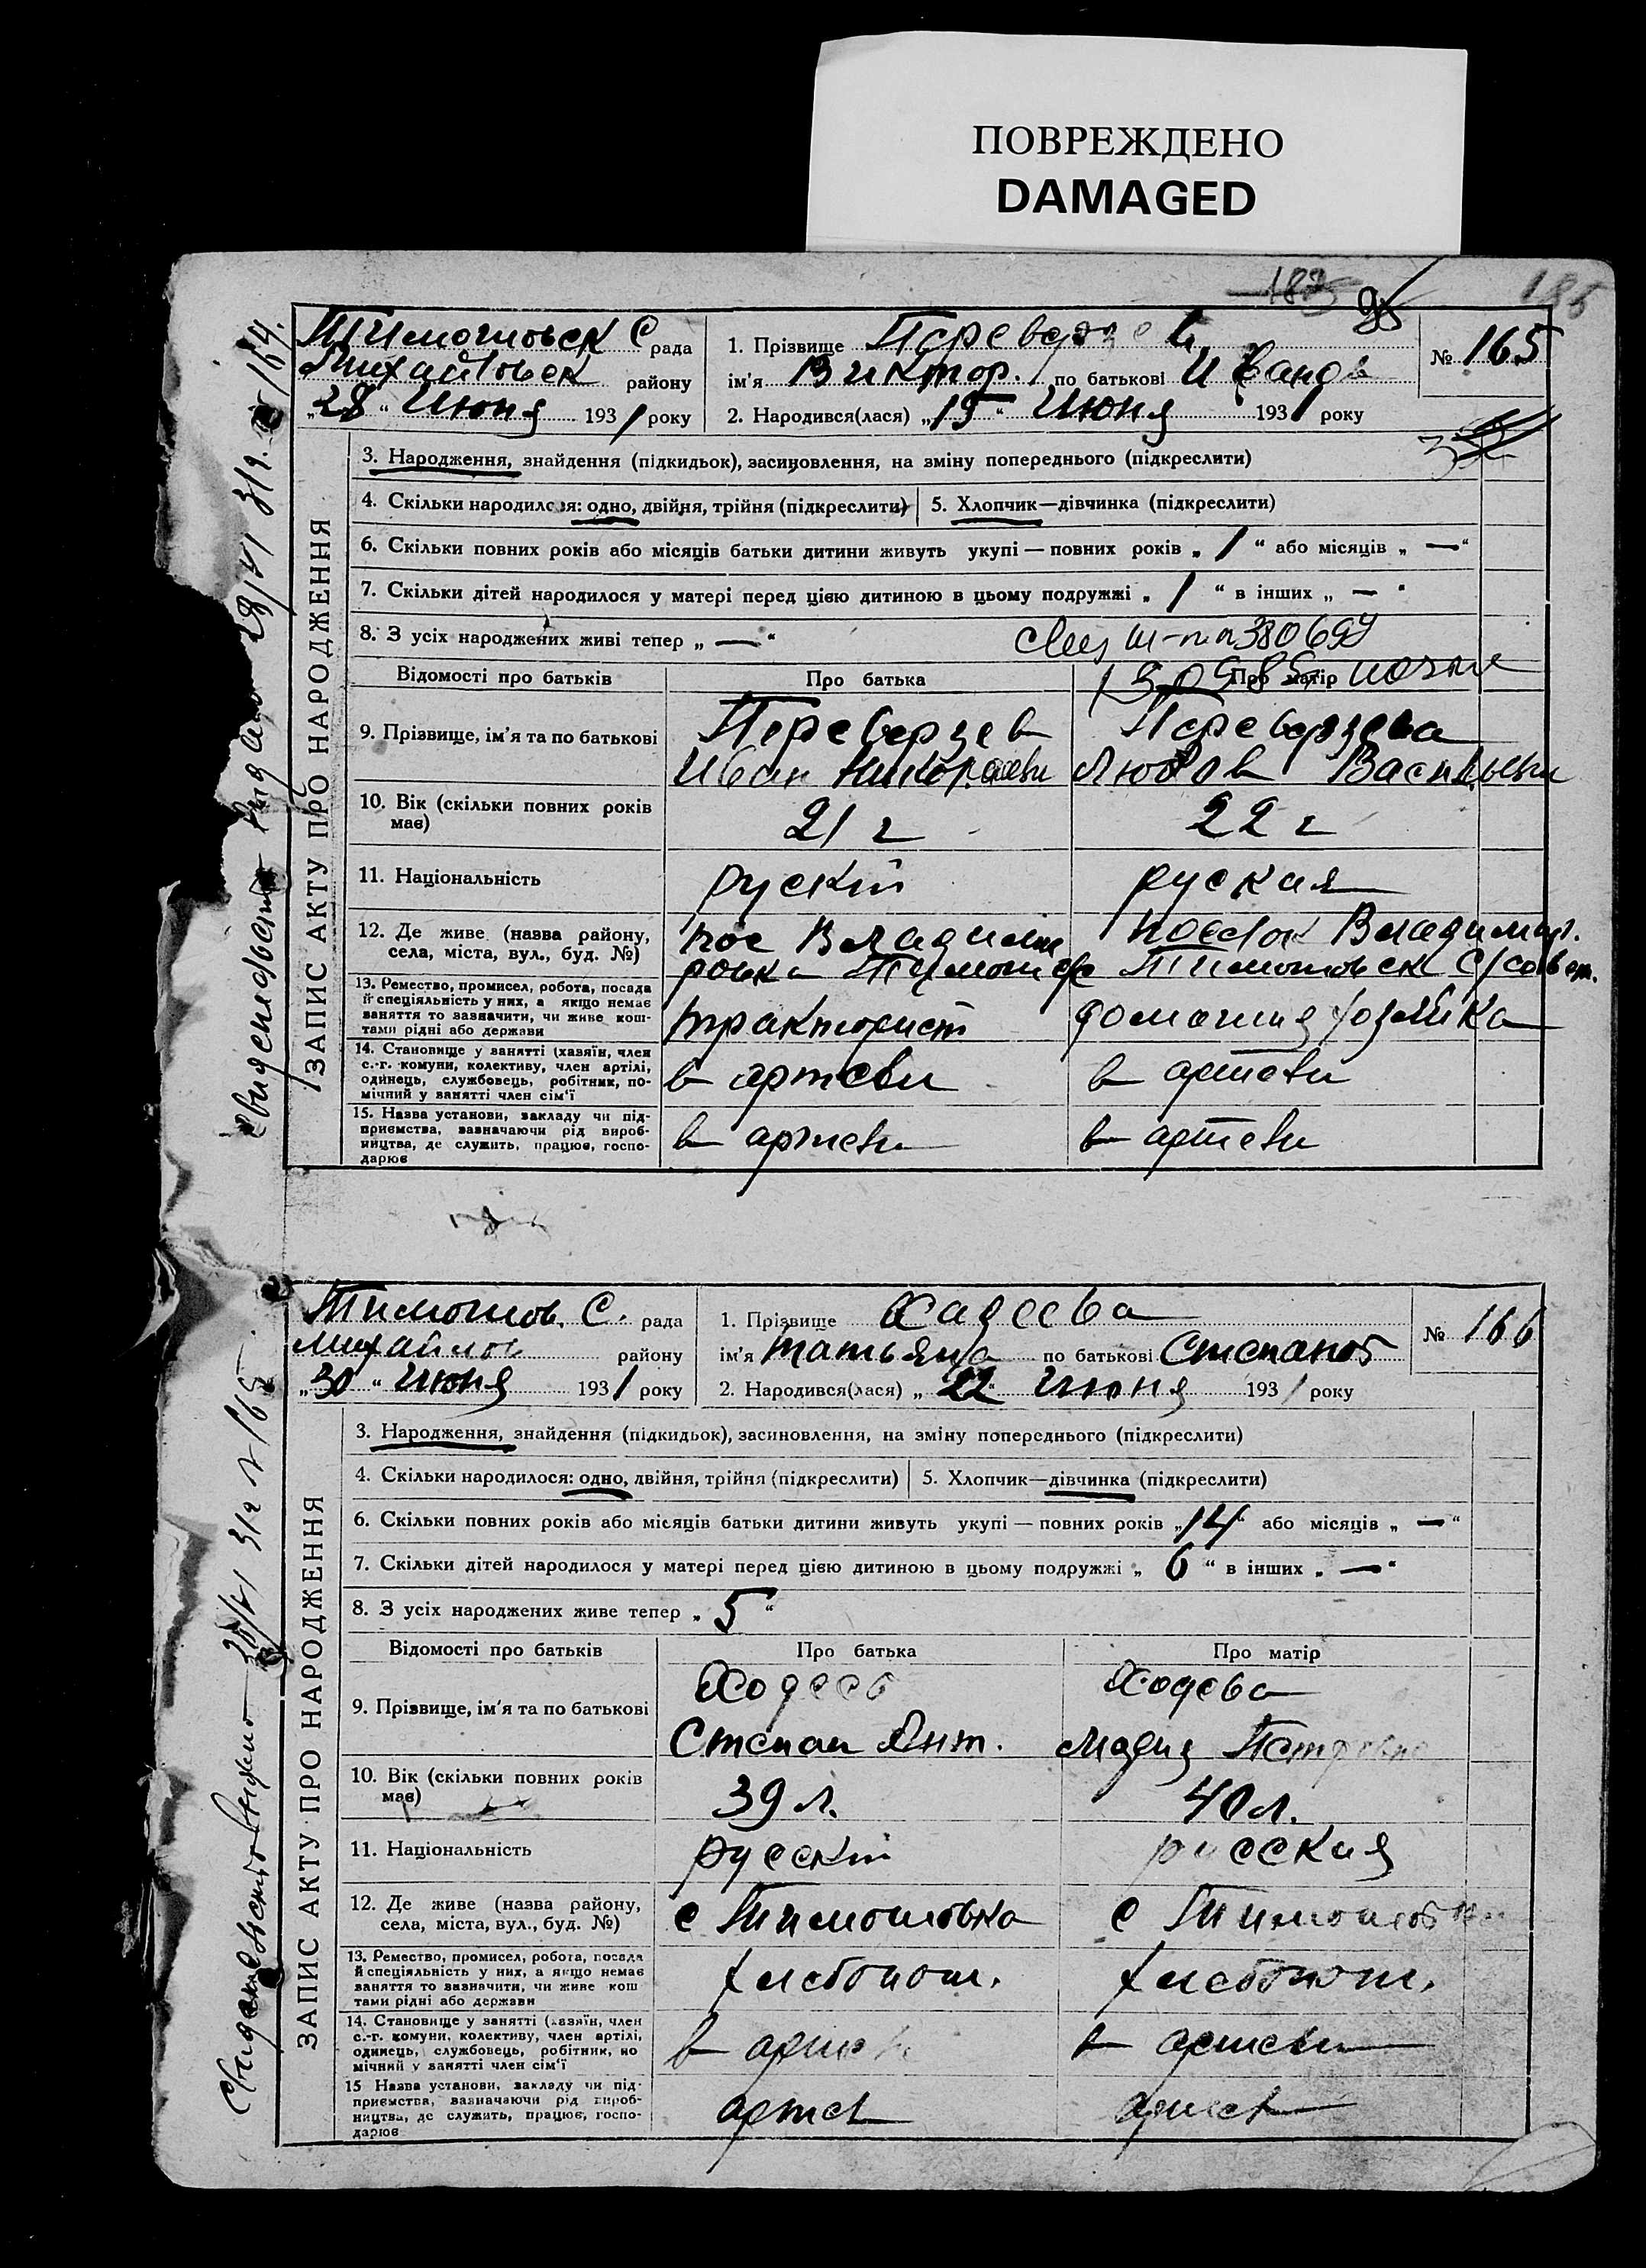 ПОВРЕЖДЕНО
DAMAGED
185
Тимошовск С рада
Михайловск району
„28“ Июня 1931 року
1. Прізвище Переверзев
ім'я Виктор. по батькові Иванов
2. Народився(лася) „15“ Июня 1931 року
№ 165
ЗАПИС АКТУ ПРО НАРОДЖЕННЯ
3. Народження, знайдення (підкидьок), засиновлення, на зміну попереднього (підкреслити)
4. Скільки народилося: одно, двійня, трійня (підкреслити)
5. Хлопчик—дівчинка (підкреслити)
6. Скільки повних років або місяців батьки дитини живуть укупі — повних років „ 1 “ або місяців „ — “
7. Скільки дітей народилося у матері перед цією дитиною в цьому подружжі „ 1 “ в інших „ — “
8. З усіх народжених живі тепер „ — “
Відомості про батьків Про батька Про матір
9. Прізвище, ім'я та по батькові
Переверзев
Иван
Переверзева
Любов Васильевн
10. Вік (скільки повних років має)
21 г
22 г
11. Національність
рускій
руская
12. Де живе (назва району, села, міста, вул., буд. №)
пос Владими
ровка Тимош с/с
поселок Владимир.
Тимошовск с/совет.
13. Ремество, промисел, робота, посада
й спеціяльність у них, а якщо немає
заняття то зазначити, чи живе кош-
тами рідні або держави
тракторист
домашня хозяйка
14. Становище у занятті (хазяїн, член
с.-г. комуни, колективу, член артілі,
одинець, службовець, робітник, по-
мічний у занятті член сім'ї
в артели
в артели
15. Назва установи, закладу чи під-
приємства, зазначаючи рід вироб-
ництва, де служить, працює, госпо-
дарює
в артели
в артели
Тимошов. С. рада
Михайлов району
„30“ Июня 1931 року
1. Прізвище Хадеева
ім'я Татьяна по батькові Степанов
2. Народився(лася) „22“ Июня 1931 року
№ 166
ЗАПИС АКТУ ПРО НАРОДЖЕННЯ
3. Народження, знайдення (підкидьок), засиновлення, на зміну попереднього (підкреслити)
4. Скільки народилося: одно, двійня, трійня (підкреслити)
5. Хлопчик—дівчинка (підкреслити)
6. Скільки повних років або місяців батьки дитини живуть укупі — повних років „14“ або місяців „ — “
7. Скільки дітей народилося у матері перед цією дитиною в цьому подружжі „ 6 “ в інших „ — “
8. З усіх народжених живе тепер „ 5 “
Відомості про батьків Про батька Про матір
9. Прізвище, ім'я та по батькові
Ходеев
Степан Ант.
Ходева
Мария Петровна
10. Вік (скільки повних років має)
39 л.
40 л.
11. Національність
русскій
русская
12. Де живе (назва району, села, міста, вул., буд. №)
с Тимошовка
с Тимошовка
13. Ремество, промисел, робота, посада
й спеціяльність у них, а якщо немає
заняття то зазначити, чи живе кош
тами рідні або держави
хлебопаш.
хлебопаш.
14. Становище у занятті (хазяїн, член
с.-г. комуни, колективу, член артілі,
одинець, службовець, робітник, по
мічний у занятті член сім'ї
в артели
в артели
15 Назва установи, закладу чи під-
приємства, зазначаючи рід вироб-
ництва, де служить, працює, госпо-
дарює
артел
артел